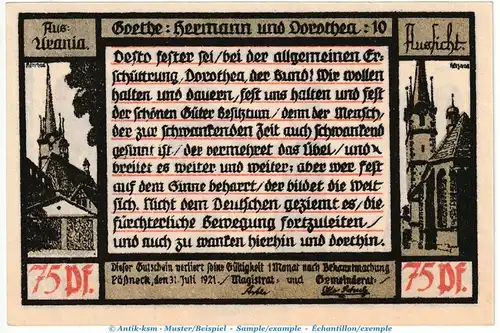 Goethe: Hermann und Dorothea: 10
Aus:
Urania.
Aussicht.
Desto fester sei/bei der allgemeinen Er-
schüttrung, Dorothea, der Bund! Wir wollen
halten und dauern, fest uns halten und fest
der schönen Güter Besitztum/denn der Mensch,
der zur schwankenden Zeit auch schwankend
gesinnt ist/der vermehret das Übel/und
breitet es weiter und weiter; aber wer fest
auf dem Sinne beharrt/der bildet die Welt
sich. Nicht dem Deutschen geziemt es/die
fürchterliche Bewegung fortzuleiten/
und auch zu wanken hierhin und dorthin.
75 Pf.
75 Pf.
Dieser Gutschein verliert seine Gültigkeit 1 Monat nach Bekanntmachung
Pößneck, den 31. Juli 1921. Magistrat und Gemeinderat:
© Antik-ksm - Muster/Beispiel - Sample/exemple - Échantillon/exemple